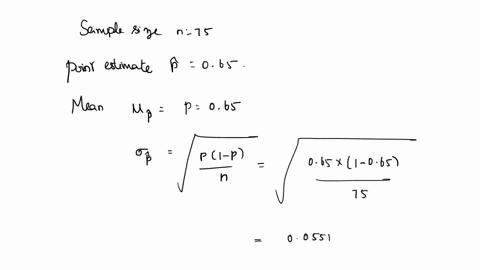 Sample size n=75
point estimate p̂ = 0.65.
Mean μp̂ = p = 0.65
σp̂ = √(p(1-p)/n) = √(0.65×(1-0.65)/75)
= 0.0551